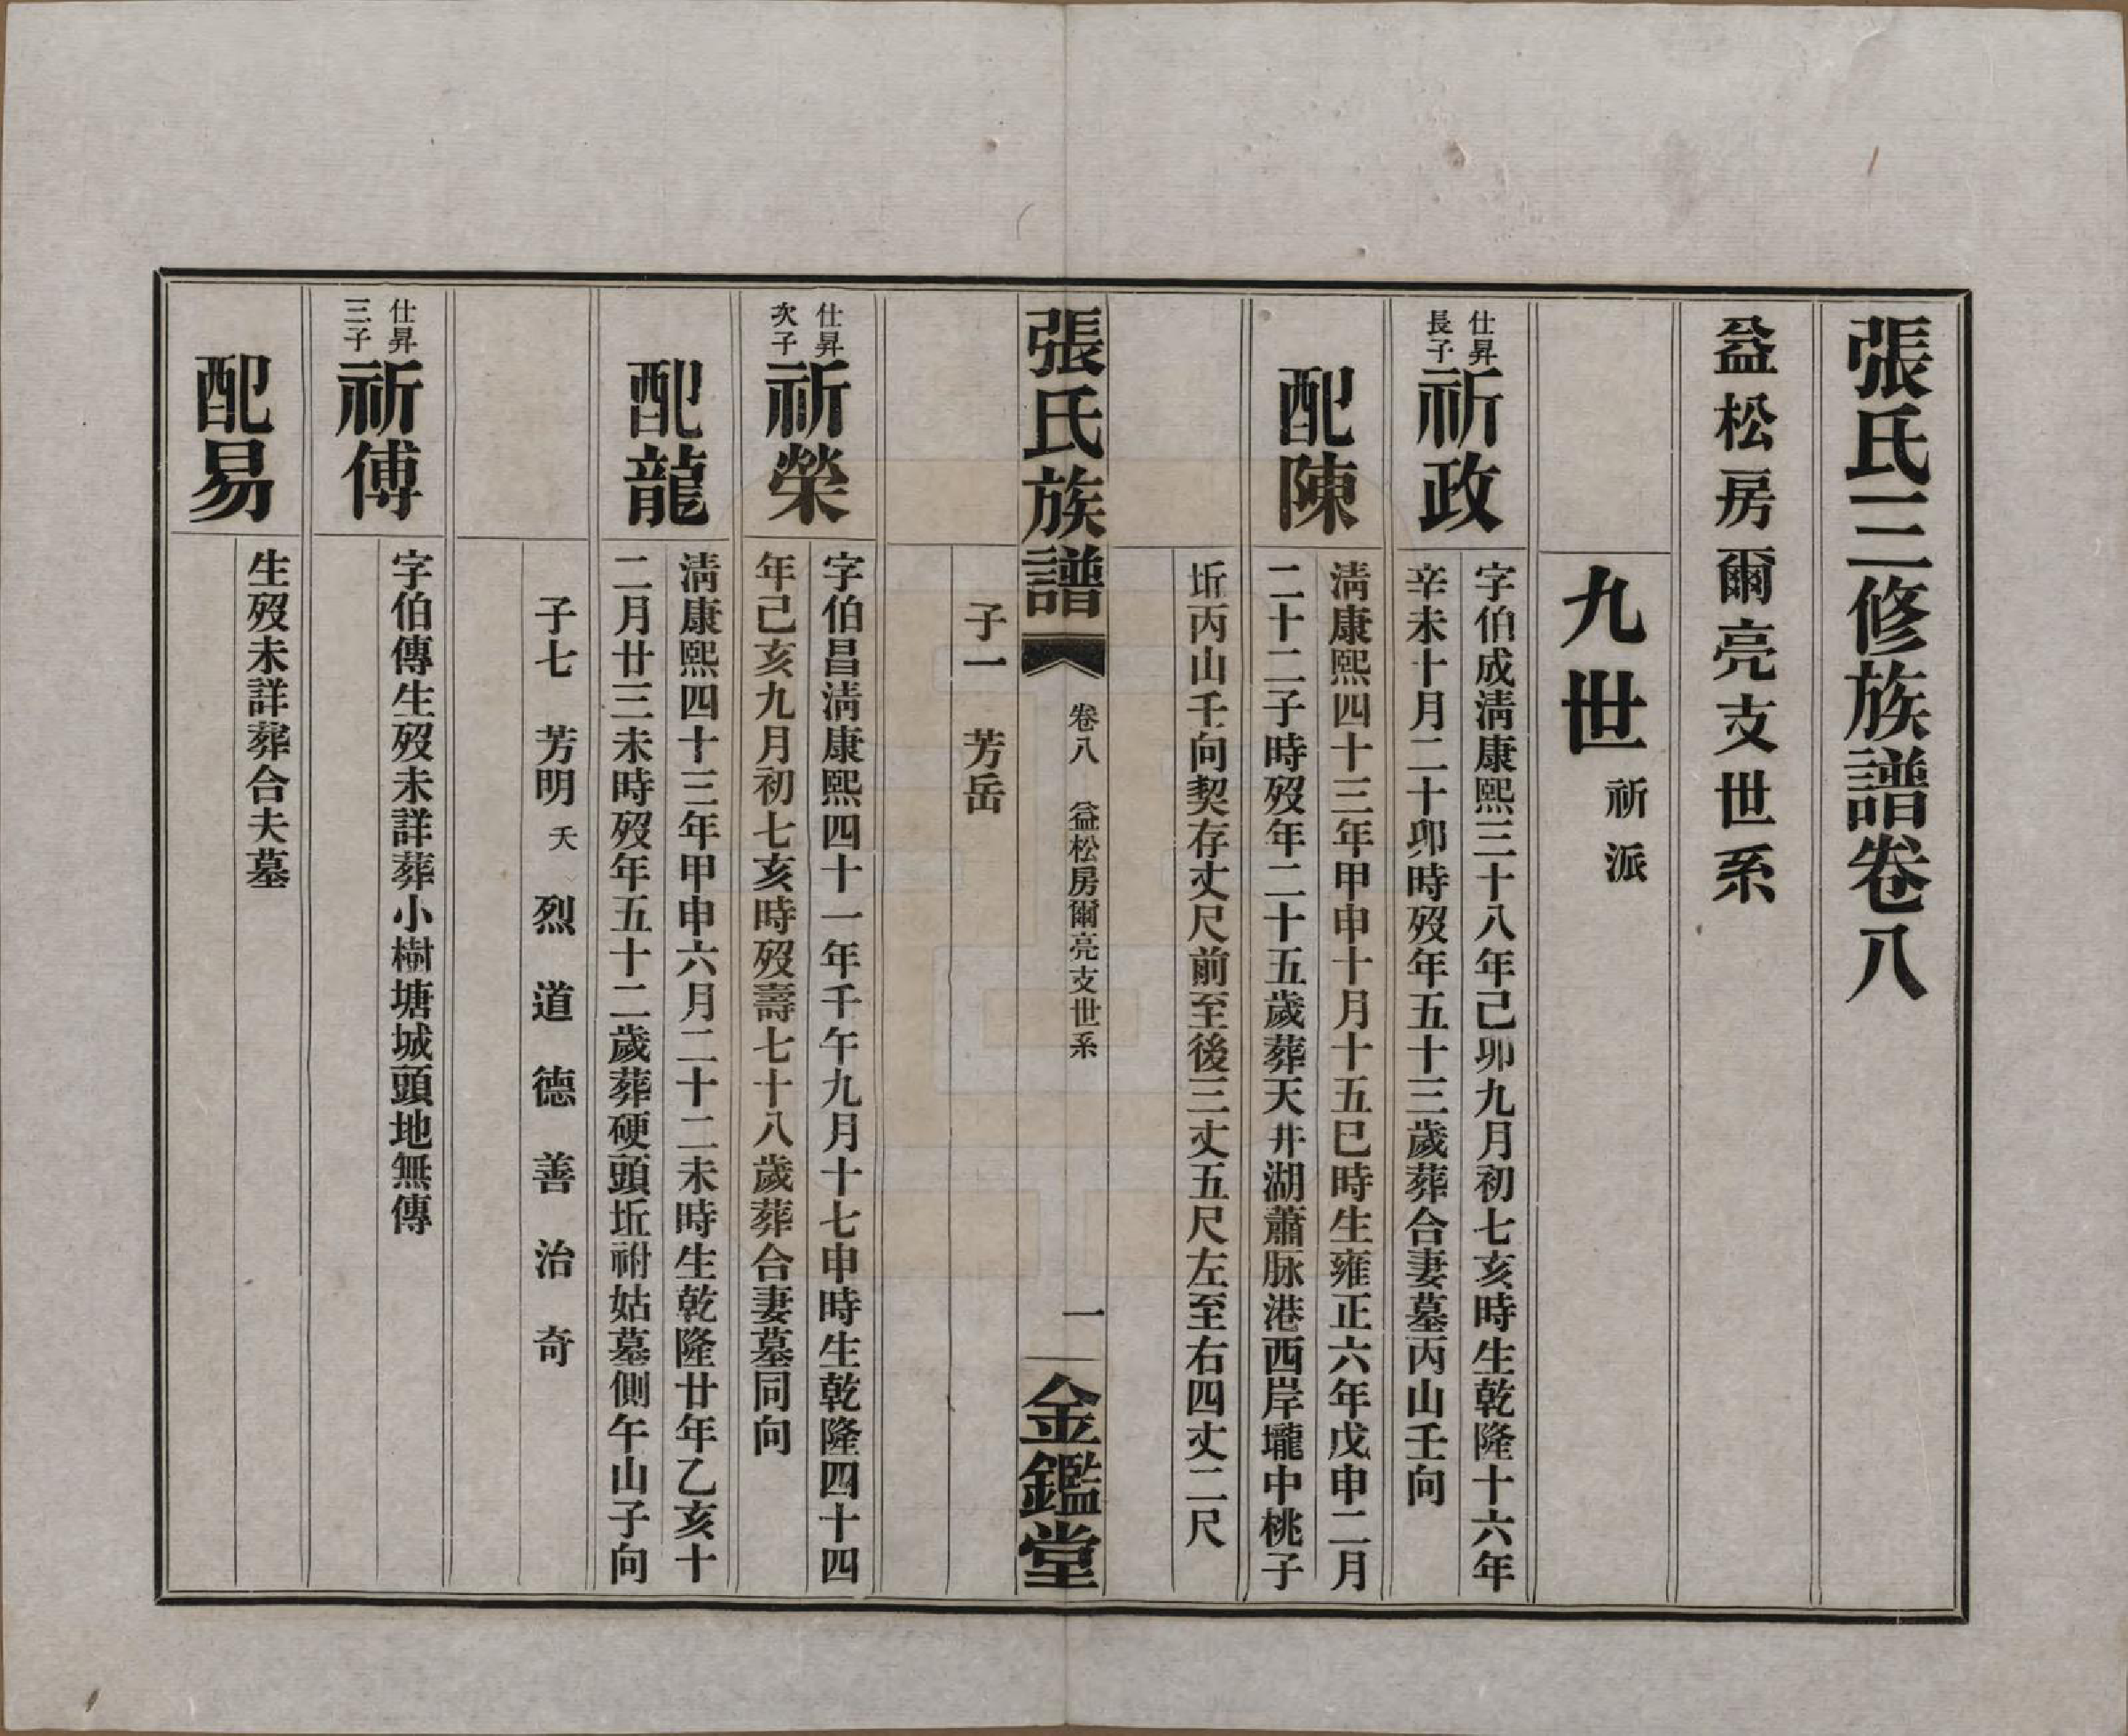 張氏三修族譜卷八
益松房爾亮支世系
九世祈派
仕昇長子
祈政
字伯成淸康熙三十八年己卯九月初七亥時生乾隆十六年
辛未十月二十卯時歿年五十三歲葬合妻墓丙山壬向
配陳
淸康熙四十三年甲申十月十五巳時生雍正六年戊申二月
二十二子時歿年二十五歲葬天井湖蕭脉港西岸壠中桃子
坵丙山壬向契存丈尺前至後三丈五尺左至右四丈二尺
張氏族譜
卷八 益松房爾亮支世系
一
金鑑堂
子一 芳岳
仕昇次子
祈榮
字伯昌淸康熙四十一年壬午九月十七申時生乾隆四十四
年己亥九月初七亥時歿壽七十八歲葬合妻墓同向
配龍
淸康熙四十三年甲申六月二十二未時生乾隆廿年乙亥十
二月廿三未時歿年五十二歲葬硬頭坵祔姑墓側午山子向
子七 芳明夭 烈 道 德 善 治 奇
仕昇三子
祈傅
字伯傳生歿未詳葬小樹塘城頭地無傳
配易
生歿未詳葬合夫墓